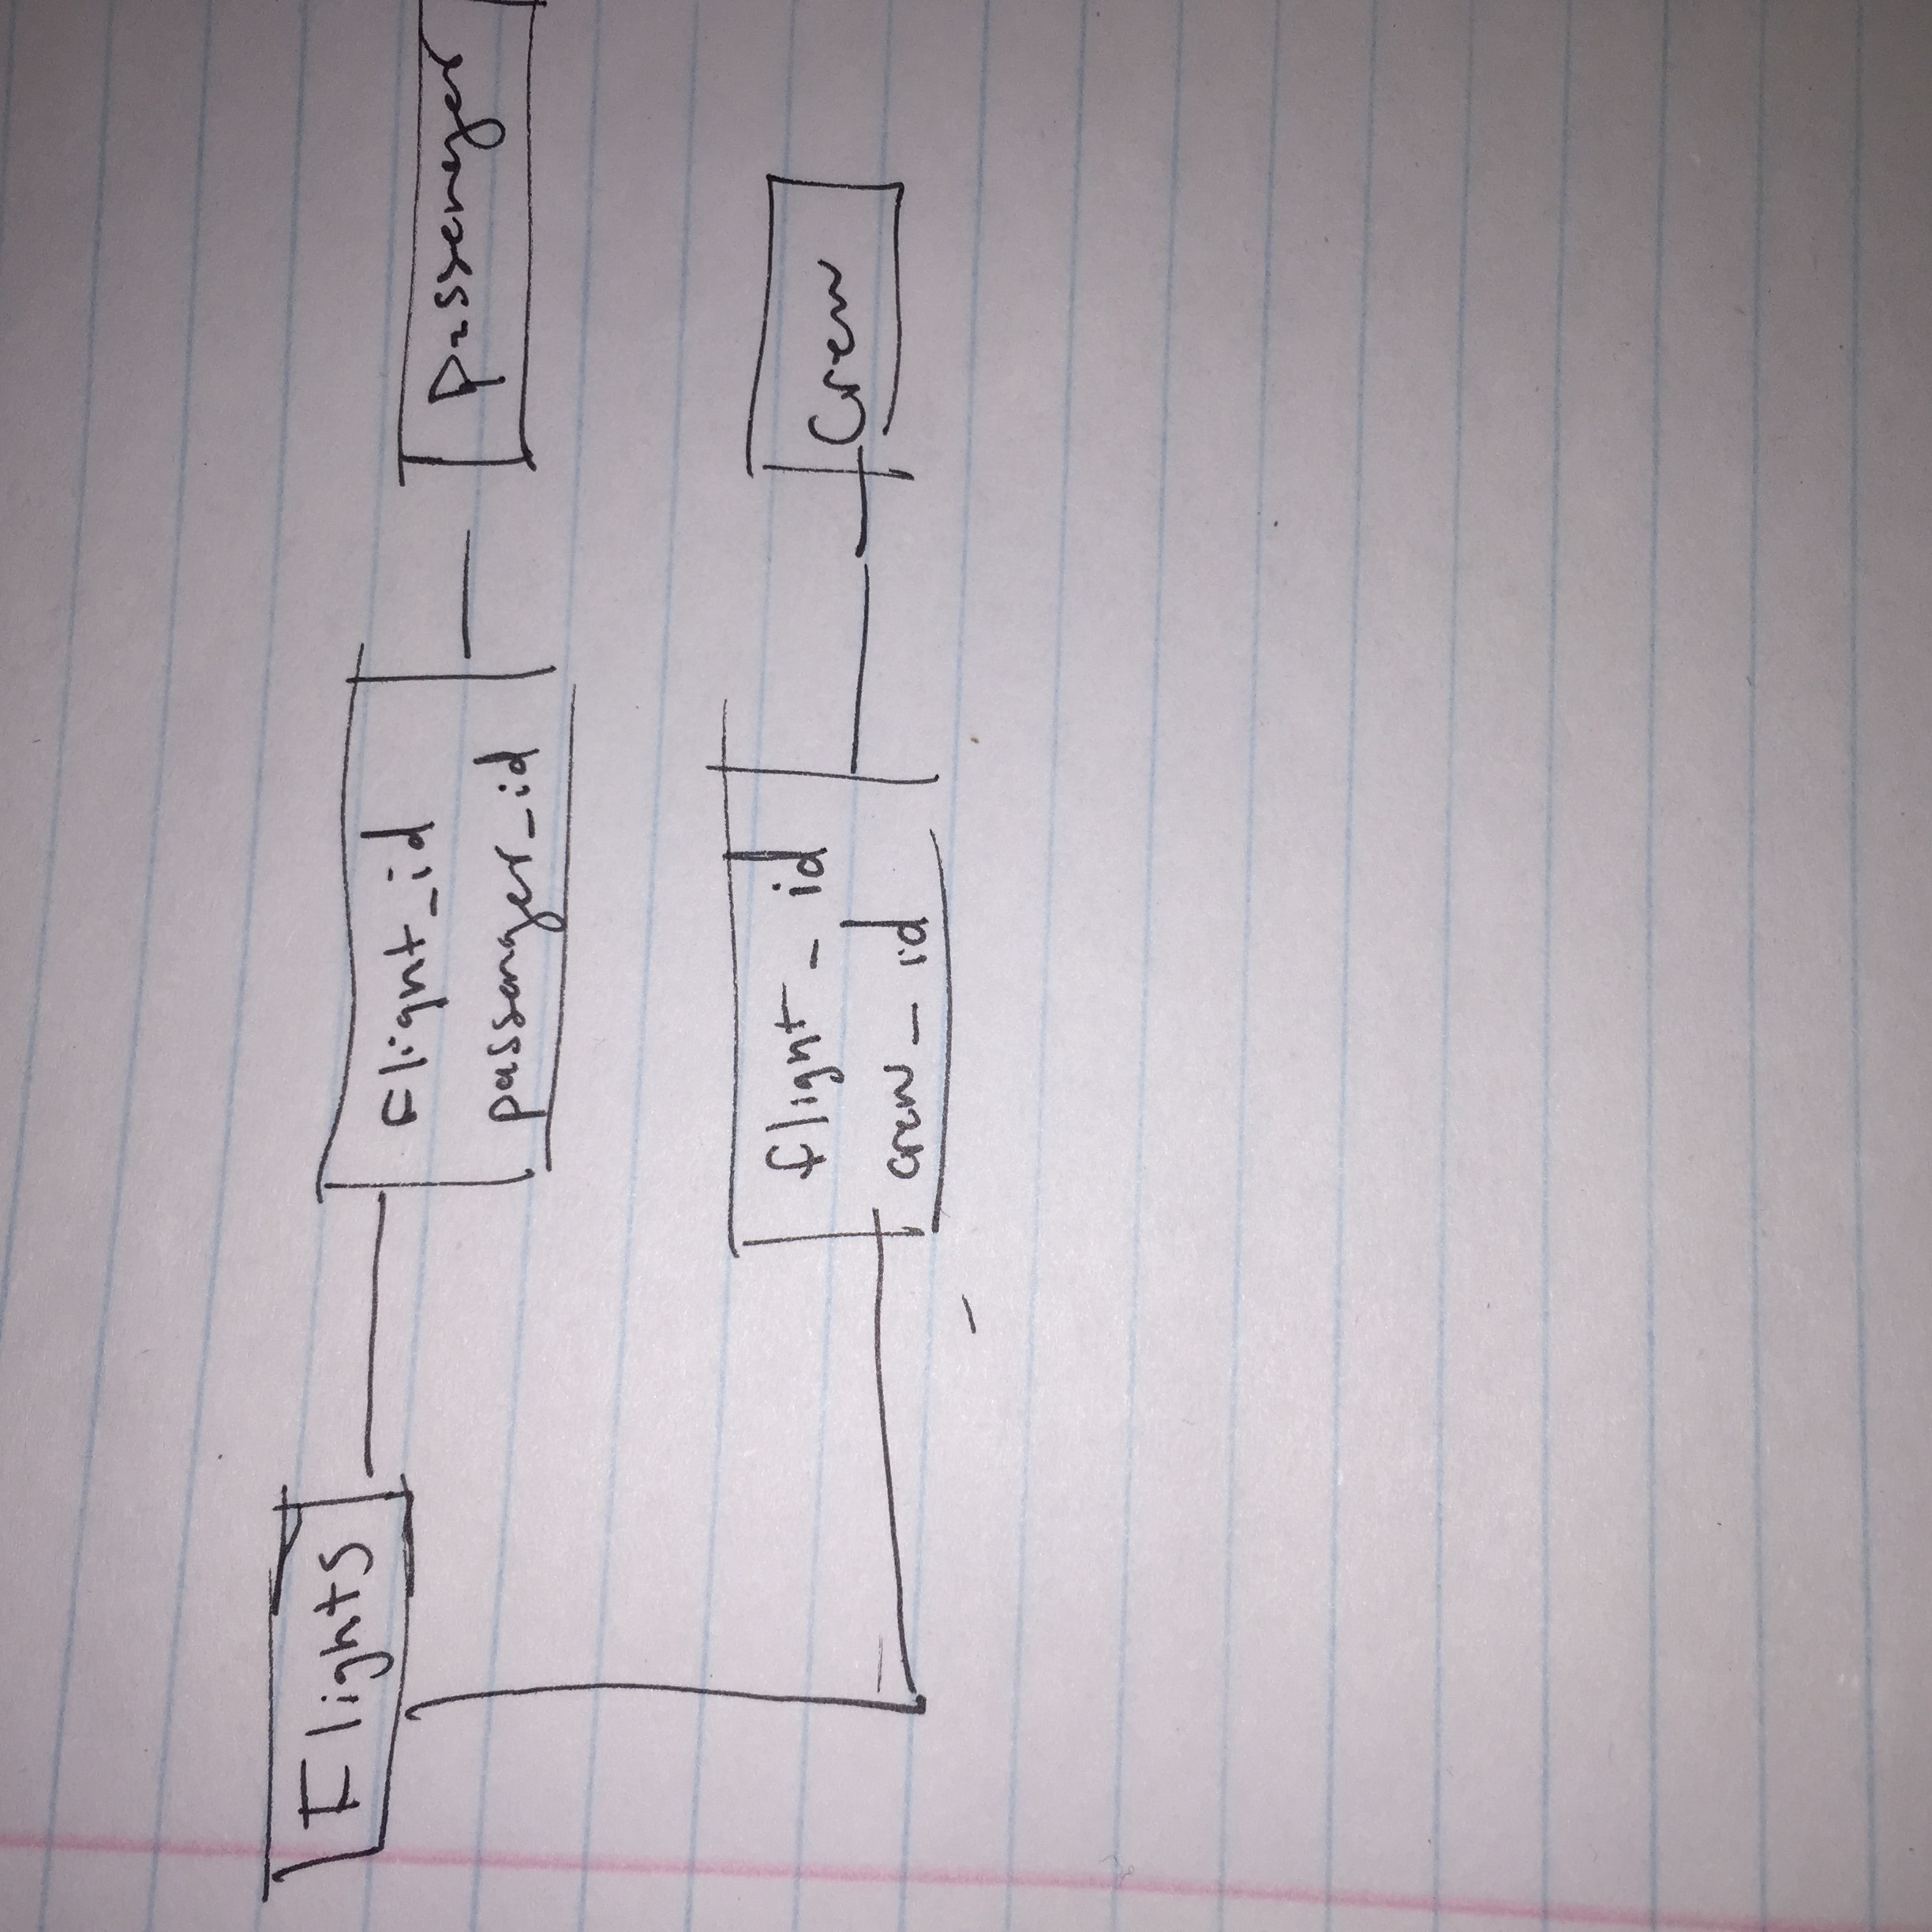 Flights
flight_id
passenger_id
passenger
flight_id
crew_id
Crew